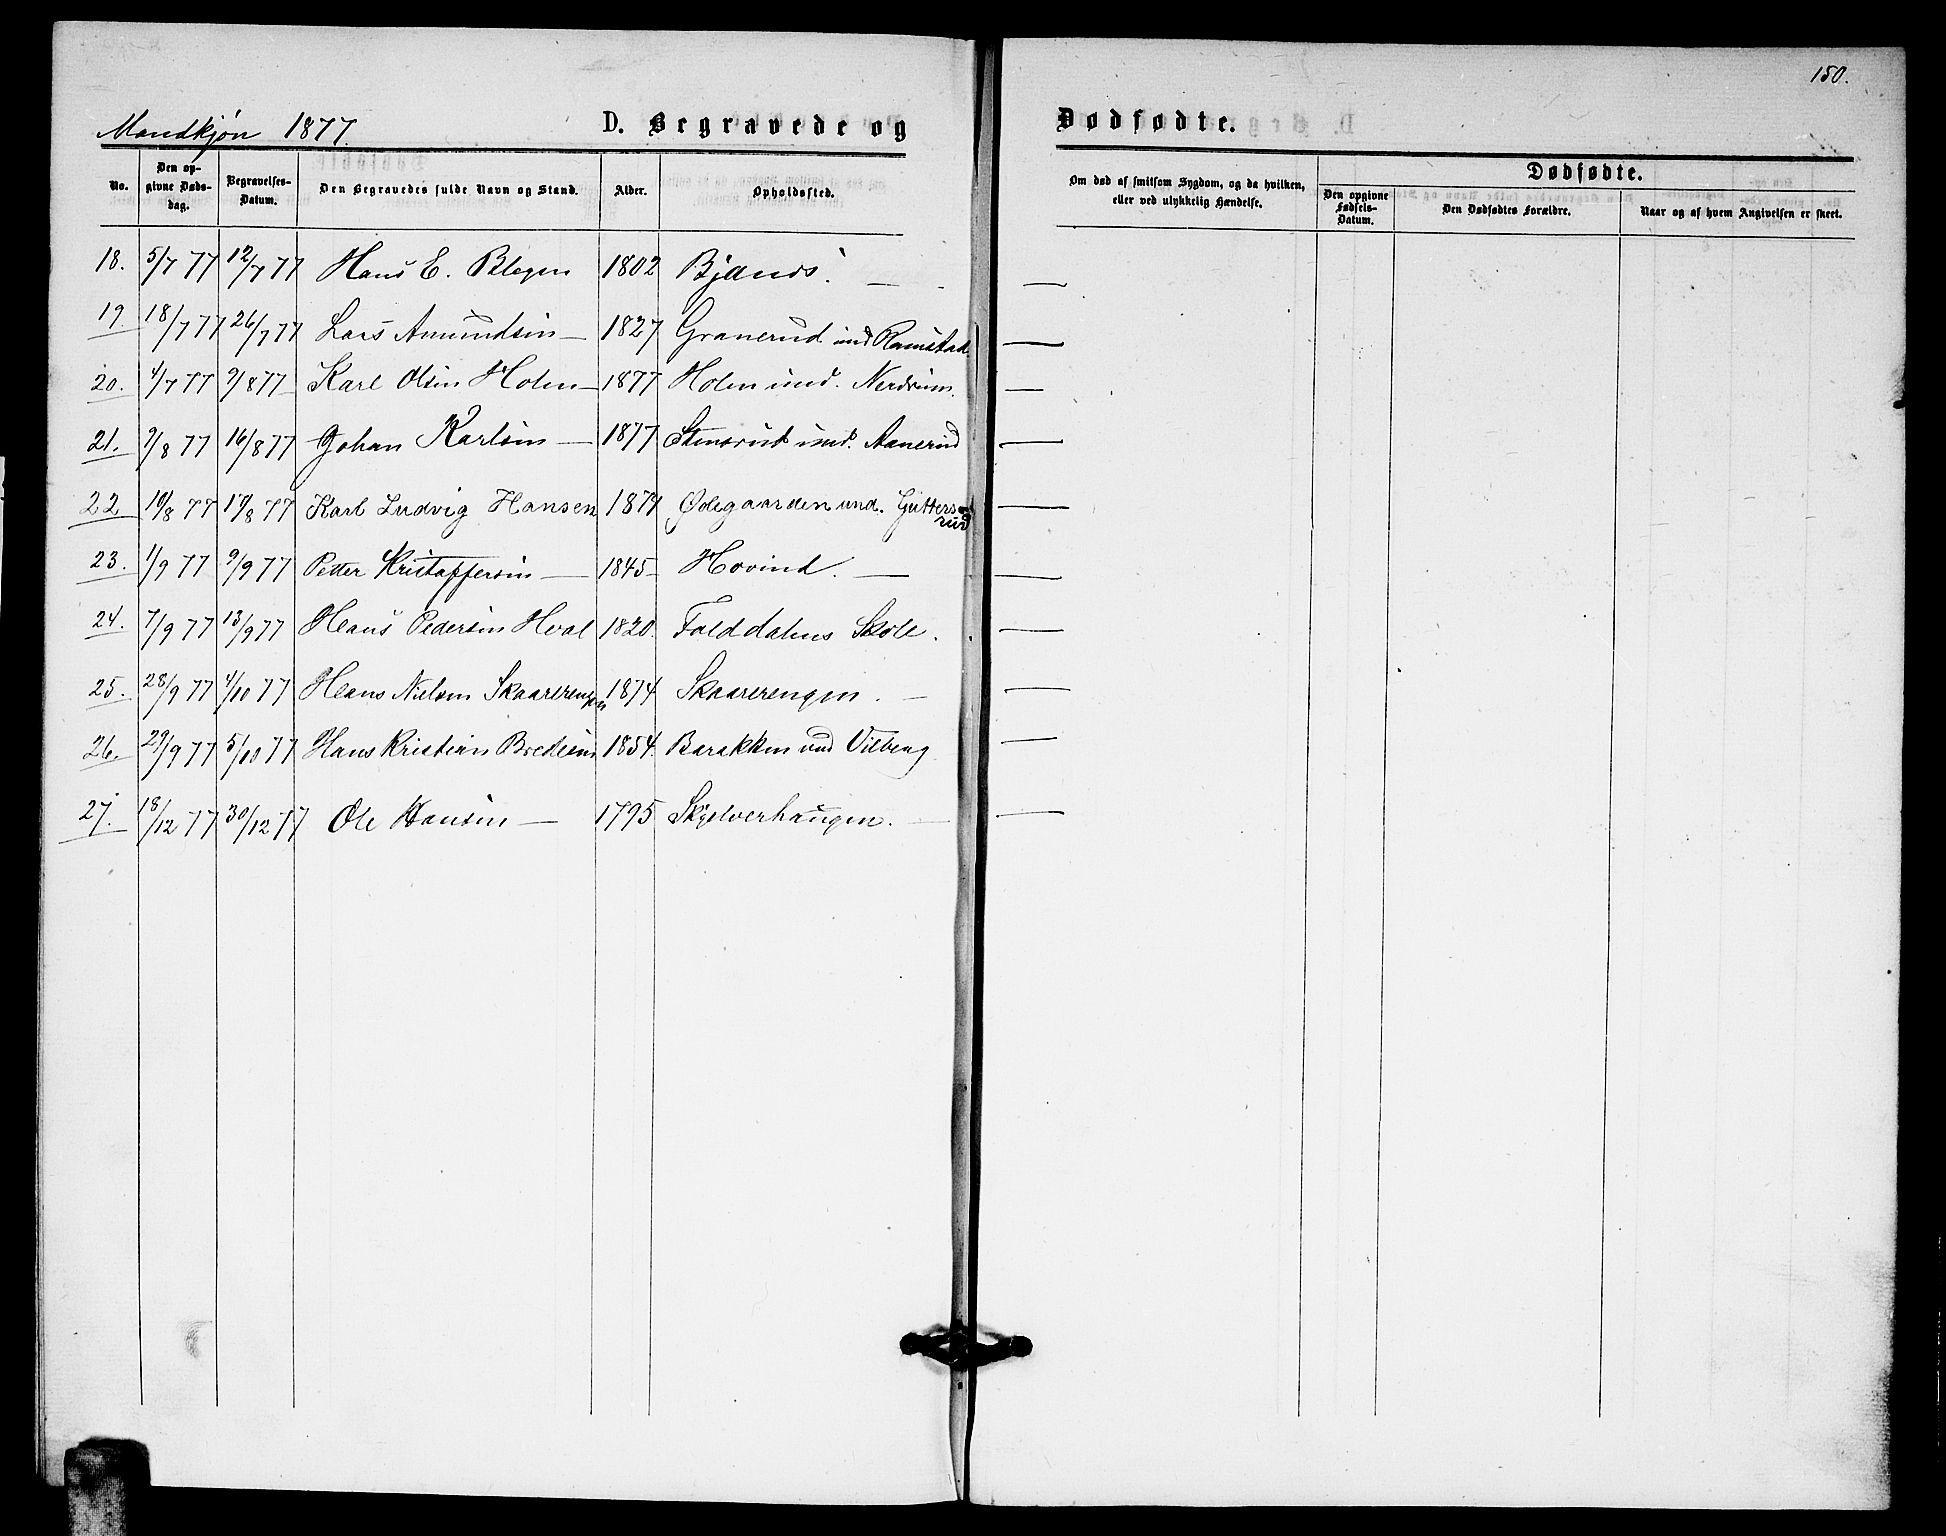 150.
Mandkjøn 1877.
D. Begravede og Dødfødte.
No. Den opgivne Dødsdag. Begravelses-Datum. Den Begravedes fulde Navn og Stand. Alder. Opholdssted. Om død af smitsom Sygdom, og da hvilken, eller ved ulykkelig Hændelse. Dødfødte. Den opgivne Fødsels-Datum. Den Dødfødtes Forældre. Naar og af hvem Angivelsen er skeet.
18. 5/7 77 12/7 77 Hans E. 1802 —
19. 18/7 77 26/7 77 Lars Amundsen — 1827 Granerud und Ramstad —
20. 4/7 77 9/8 77 Karl Olsen Holen — 1877 Holen und. Nerdrum. —
21. 9/8 77 16/8 77 Johan Karlsen — 1877 Stensrud und. Aanerud —
22 10/8 77 17/8 77 Karl Ludvig Hansen 1874 Ødegaarden und. Guttersrud —
23. 1/9 77 9/9 77 Petter Kristoffersen — 1845 — Hovind. — —
24. 7/9 77 13/9 77 Hans Pedersen Hval 1820. Falddalens Skole. —
25. 28/9 77 4/10 77 Hans Nielsen Skaarerengen 1874 Skaarerengen. — —
26. 29/9 77 5/10 77 Hans Kristian Bredesen 1854. Barakken und Vilberg —
27. 18/12 77 30/12 77 Ole Hansen — 1795 Skjelverhaugen. — —